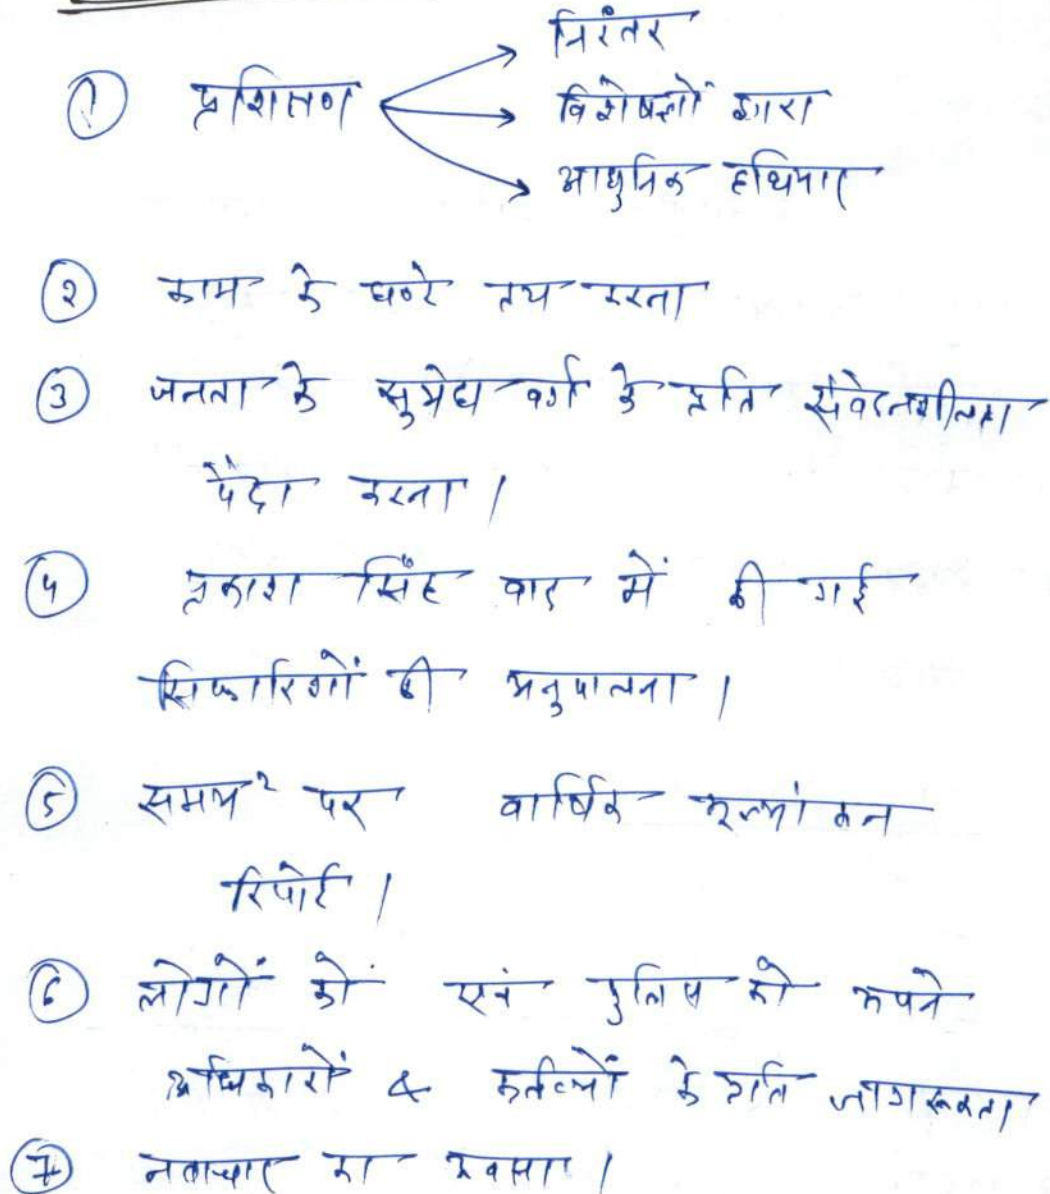 निरंतर
① प्रशिक्षण विशेषज्ञों द्वारा
आधुनिक हथियार
② काम के घण्टे तय करना
③ जनता के सुभेद्य वर्ग के प्रति संवेदनशीलता
पैदा करना।
④ प्रकाश सिंह वाद में की गई
सिफारिशों की अनुपालना।
⑤ समय² पर वार्षिक मूल्यांकन
रिपोर्ट।
⑥ लोगों को एवं पुलिस को अपने
अधिकारों & कर्तव्यों के प्रति जागरूकता
⑦ नवाचार का